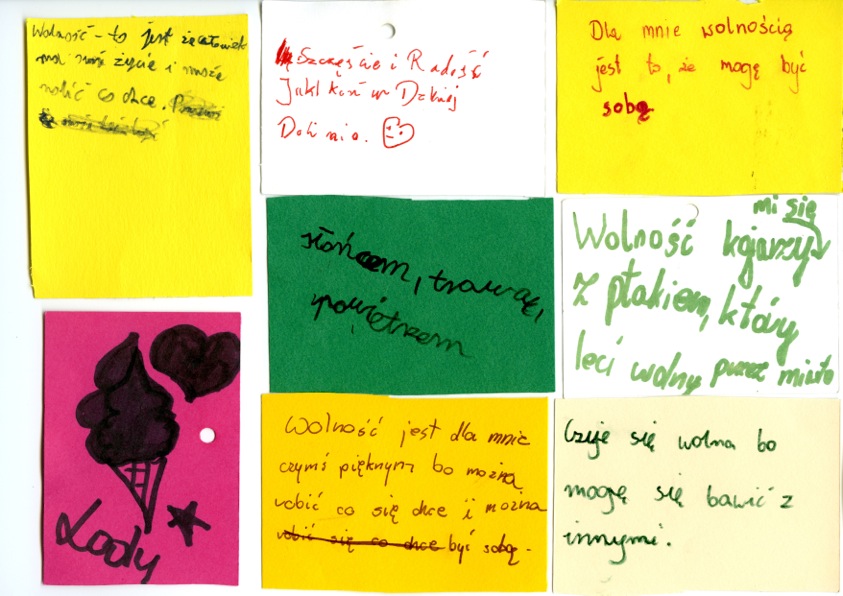 Wolność - to jest że człowiek
ma swoje życie i może
robić co chce.
Szczęście i Radość
Jak koń w Dzikiej
Dolinie.
Dla mnie wolnością
jest to, że mogę być
sobą
słońcem, trawą,
powietrzem
Wolność kojarzy mi się
z ptakiem, który
leci wolny przez miasto
Lody
Wolność jest dla mnie
czymś pięknym bo można
robić co się chce i można
robić się co chce być sobą.
Czuje się wolna bo
mogę się bawić z
innymi.